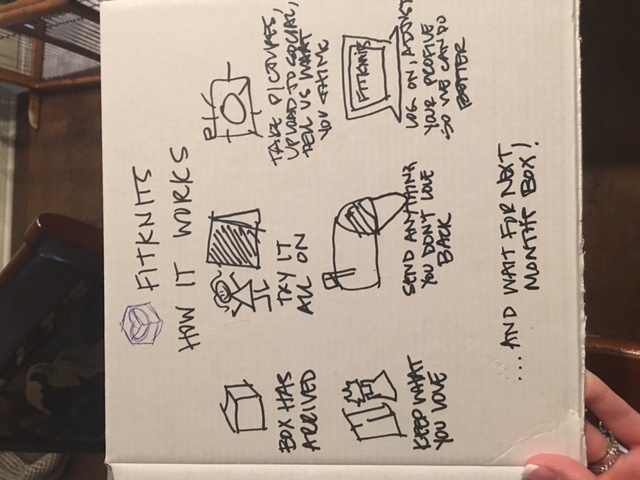 FITKNITS
HOW IT WORKS
BOX HAS
ARRIVED
TRY IT
ALL ON
TAKE PICTURES,
UPLOAD TO SOCIAL,
TELL US WHAT
YOU THINK
KEEP WHAT
YOU LOVE
SEND ANYTHING
YOU DON'T LOVE
BACK
FITKNIT
LOG ON, ADJUST
YOUR PROFILE
SO WE CAN DO
BETTER
....AND WAIT FOR NEXT
MONTH'S BOX!